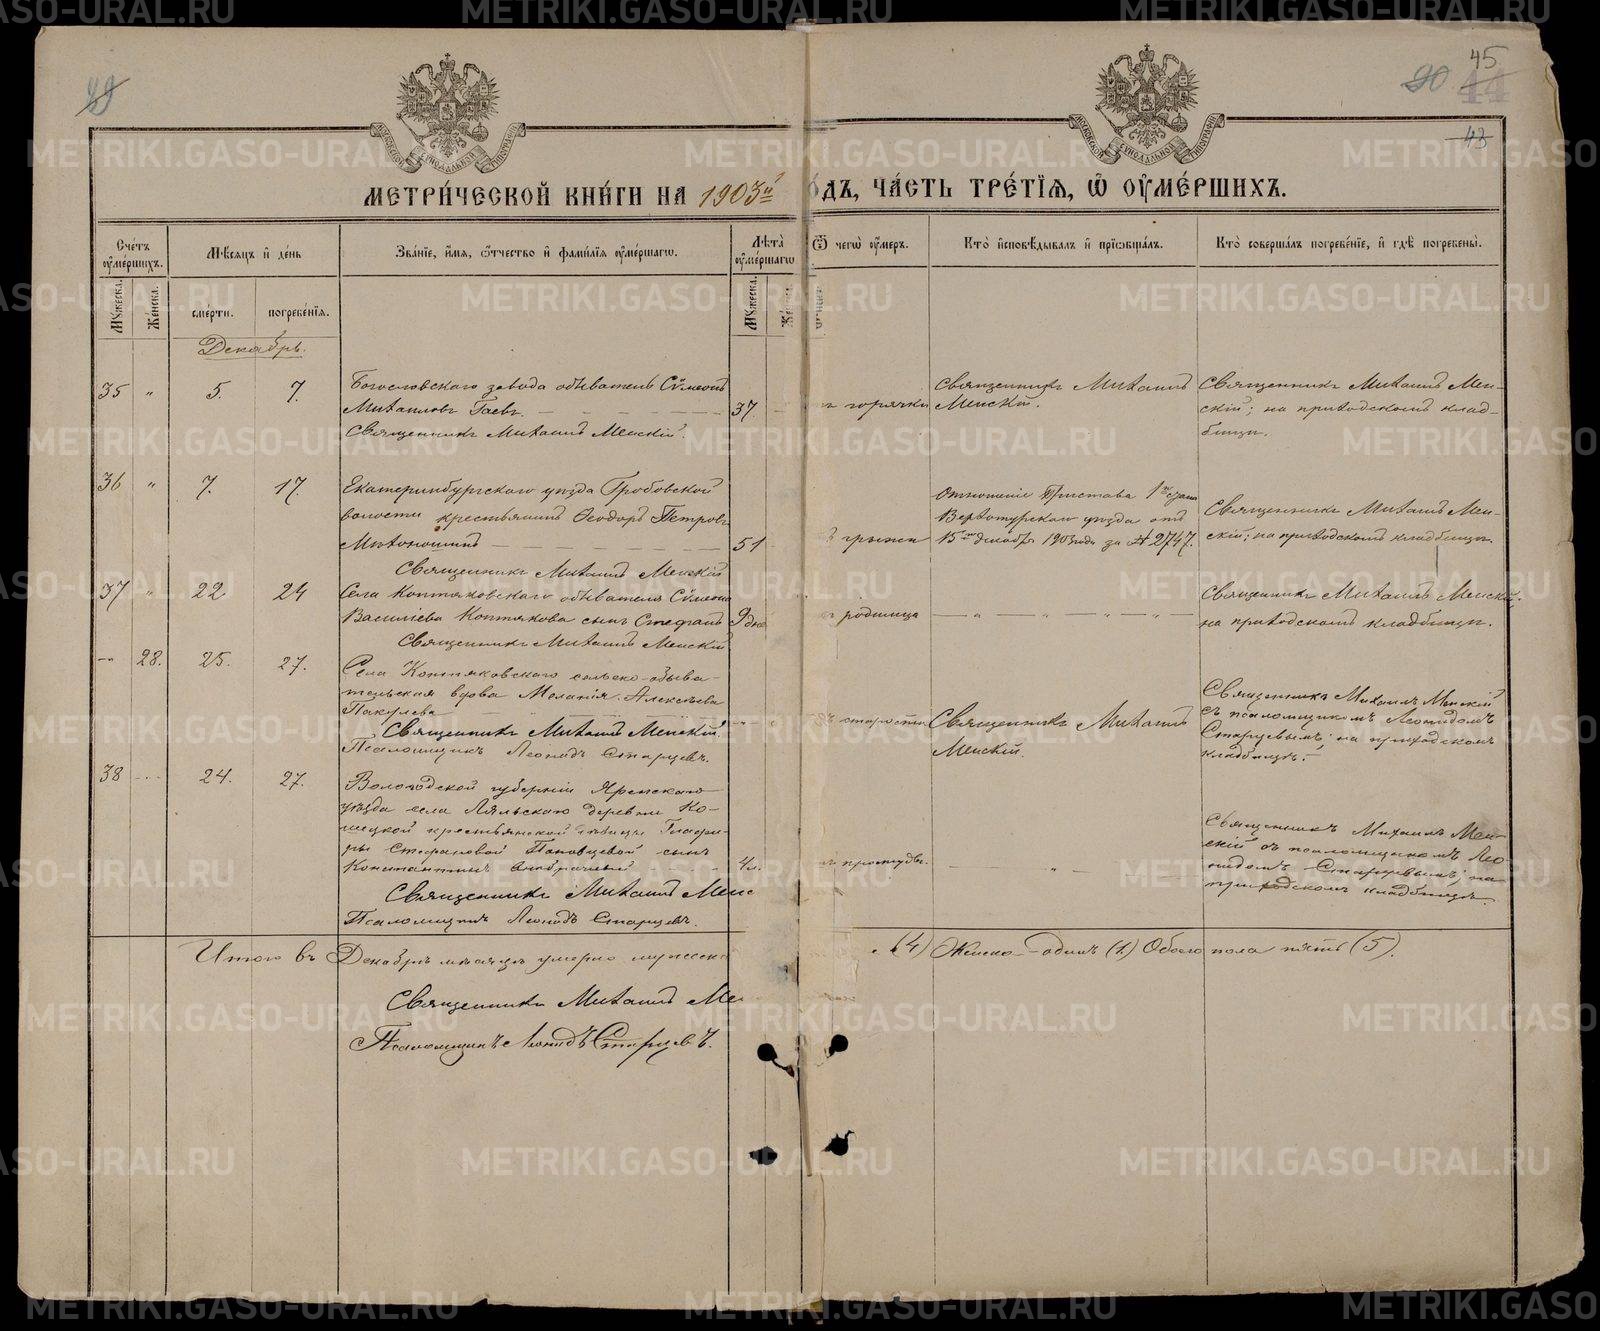 45
90 44
43
МЕТРИЧЕСКОЙ КНИГИ НА 1903й
ОДЪ, ЧАСТЬ ТРЕТІЯ, Ѿ ОУМЕРШИХЪ.
Счетъ оумершихъ.
Мужеска.
Женска.
Мѣсяцъ и день
смерти.
погребенія.
Званіе, имя, отчество и фамилія оумершагѡ.
Лѣта оумершагѡ
Мужеска.
Ѿ чегѡ оумеръ.
Кто исповѣдывалъ и пріобщалъ.
Кто совершалъ погребеніе, и гдѣ погребены.
Декабрь.
35 " 5. 7.
Богословскаго завода обыватель Сѵмеонъ
Михаиловъ Гаевъ. 37 горячки
Священникъ Михаилъ Менскій.
Священникъ Михаилъ
Менскій.
Священникъ Михаилъ Мен-
скій; на приходскомъ клад-
бищѣ.
36 " 7. 17.
Екатеринбургскаго уѣзда Гробовской
волости крестьянинъ Ѳеодоръ Петровъ
51 грыжи
Священникъ Михаилъ Менскій
Отношеніе Пристава 1го стана
Верхотурскаго уѣзда отъ
15го декабря 1903 года за № 2747.
Священникъ Михаилъ Мен-
скій; на приходскомъ кладбищѣ.
37 " 22 24
Села Коптяковскаго обывателя Сѵмеона
Василіева Коптякова сынъ Стефанъ 9 дне родимца
Священникъ Михаилъ Менскій
Священникъ Михаилъ Менскій;
на приходскомъ кладбищѣ.
28. 25. 27.
Села Коптяковскаго сельско-обыва-
тельская вдова Меланія Алексѣева
Пакулева старости
Священникъ Михаилъ Менскій.
Псаломщикъ Леонидъ Старцевъ.
Священникъ Михаилъ
Менскій.
Священникъ Михаилъ Менскій
съ псаломщикомъ Леонидомъ
Старцевымъ; на приходскомъ
кладбищѣ.
38 24. 27.
Вологодской губерніи Яренскаго
уѣзда села Ляльскаго деревни Ко-
крестьянской дѣвицы Глафи-
ры Стефановой сынъ
Константинъ внѣбрачный простуды.
Священникъ Михаилъ Менс
Псаломщикъ Леонидъ Старцевъ.
Священникъ Михаилъ Мен-
скій съ псаломщикомъ Лео-
нидомъ Старцевымъ; на
приходскомъ кладбищѣ.
Итого въ Декабрѣ мѣсяцѣ умерло мужеска
(4) Женска - одинъ (1.) Обоего пола пять (5).
Священникъ Михаилъ Мен
Псаломщикъ Леонидъ Старцевъ.
METRIKI.GASO-URAL.RU